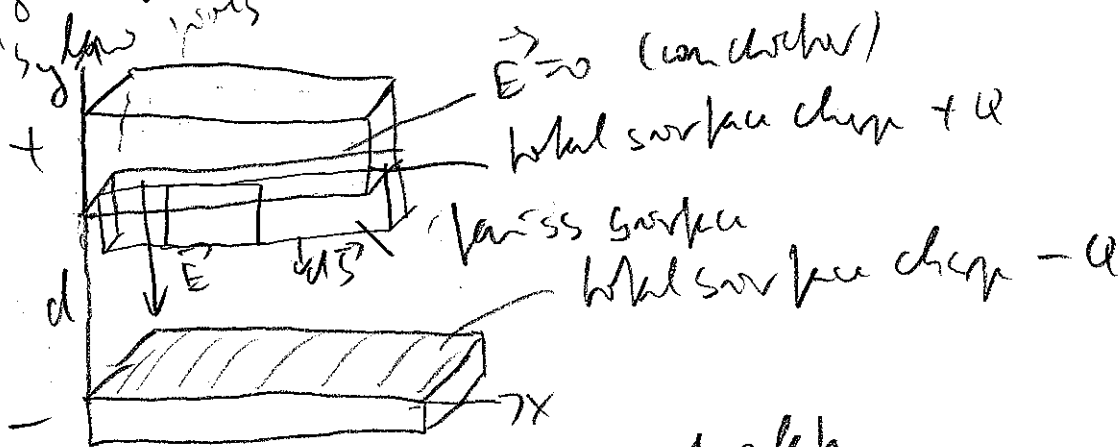 E⃗ = 0 (conductor)
+
total surface charge + Q
Gauss surface
E⃗
dS⃗
total surface charge - Q
d
→ x
-